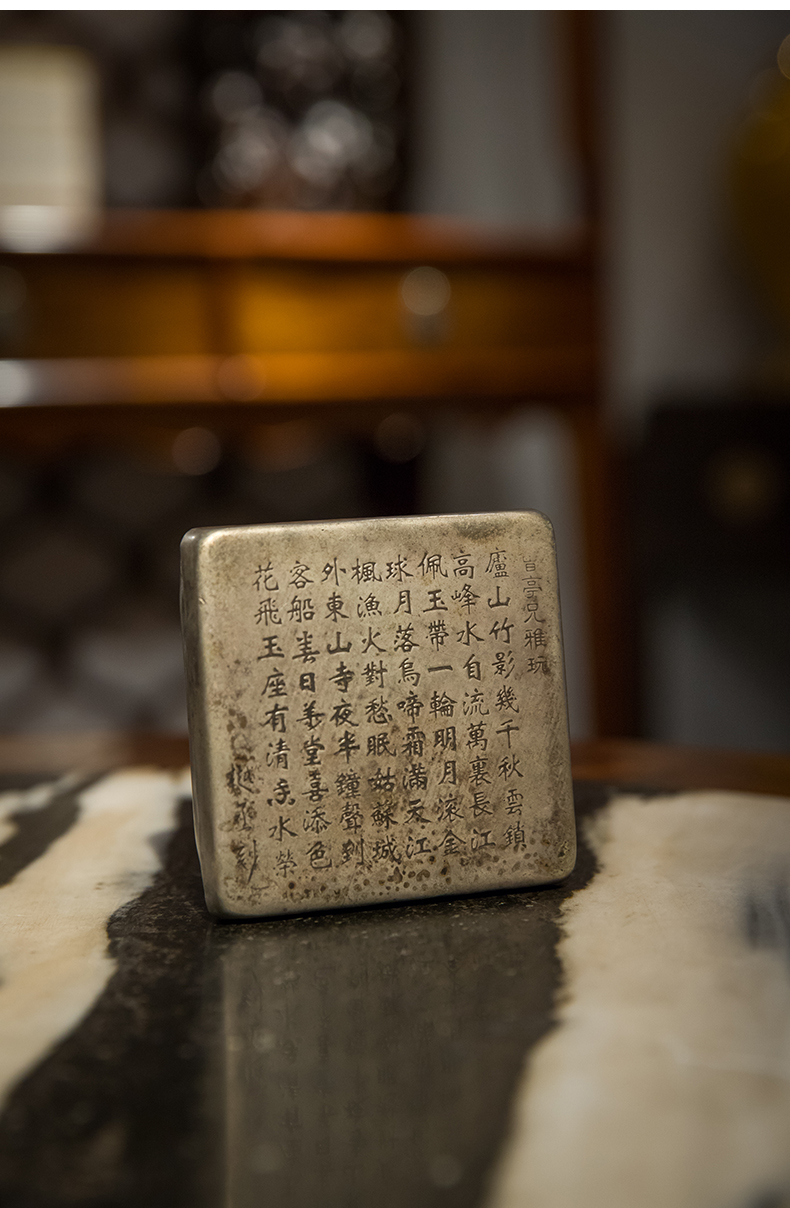 亭兄雅玩
廬山竹影幾千秋雲鎖
高峰水自流萬裏長江
佩玉帶一輪明月滾金
球月落烏啼霜滿天江
楓漁火對愁眠姑蘇城
外東山寺夜半鐘聲到
客船春日堂喜添色
花飛玉座有清香水榮